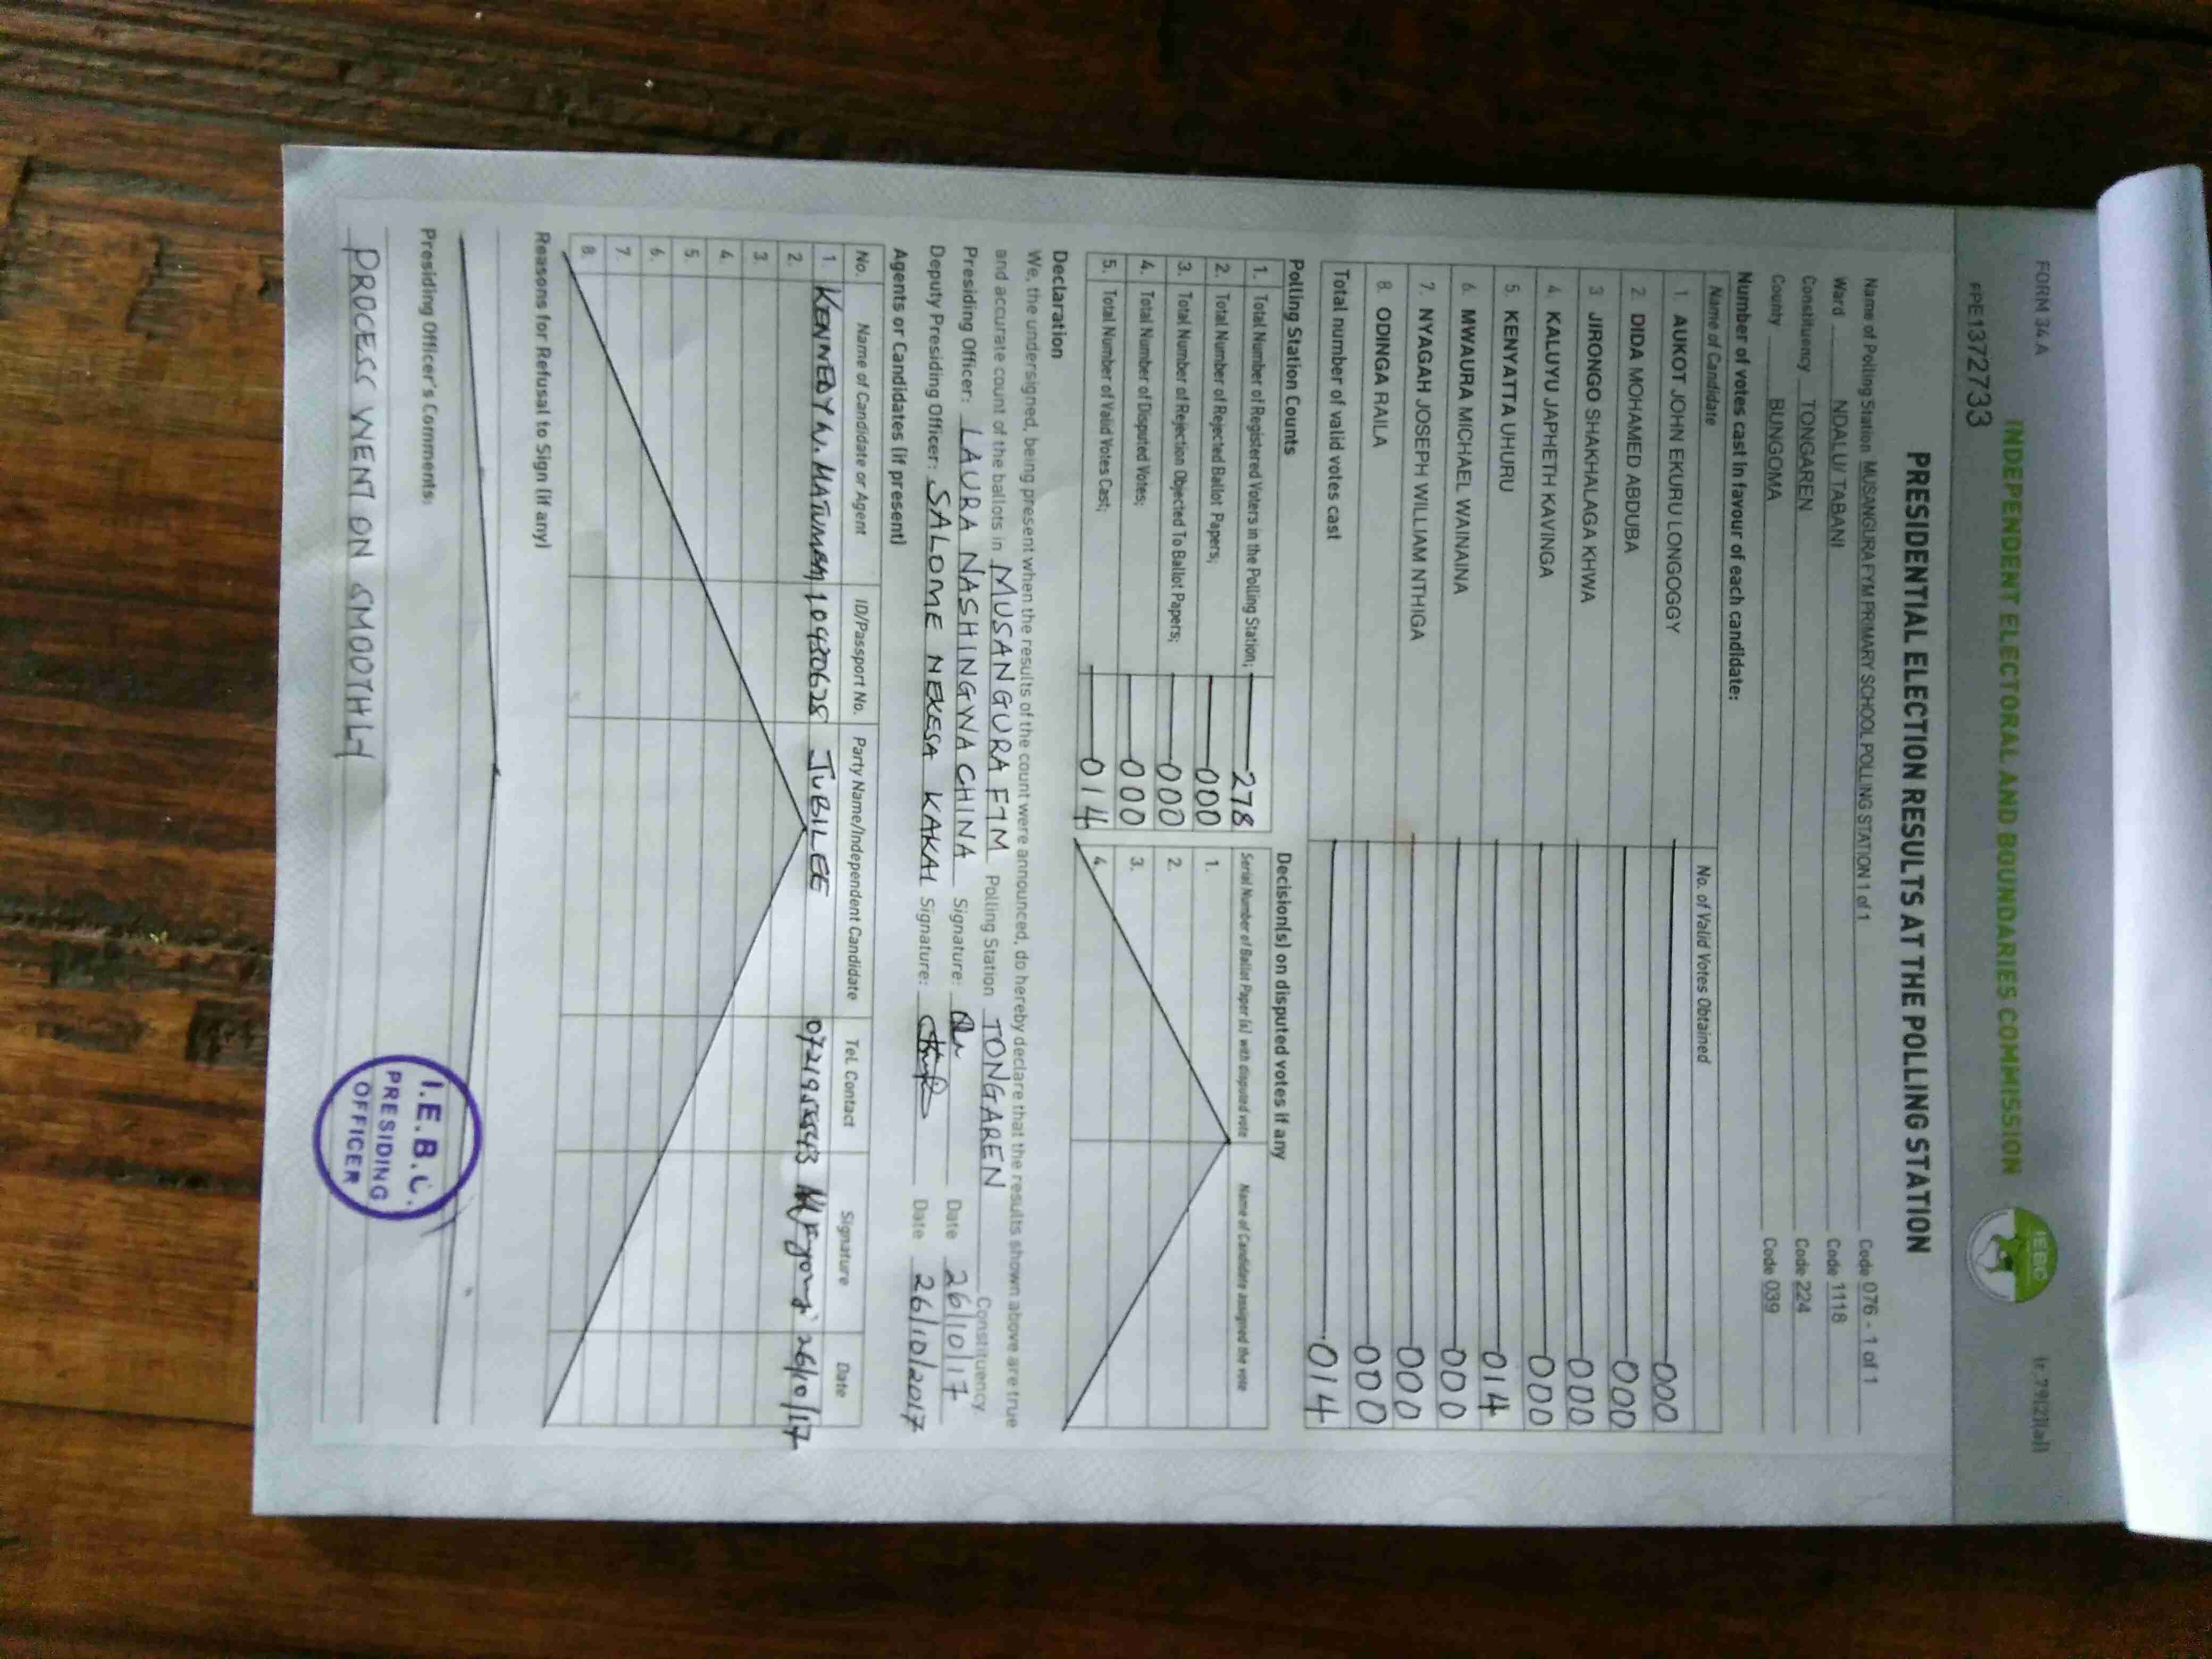 FORM 34 A
(r.79(2)(a))
INDEPENDENT ELECTORAL AND BOUNDARIES COMMISSION
IEBC
#PE1372733
PRESIDENTIAL ELECTION RESULTS AT THE POLLING STATION
Name of Polling Station MUSANGURA FYM PRIMARY SCHOOL POLLING STATION 1 of 1 Code 076 - 1 of 1
Ward NDALU/ TABANI Code 1118
Constituency TONGAREN Code 224
County BUNGOMA Code 039
Number of votes cast in favour of each candidate:
Name of Candidate No. of Valid Votes Obtained
1. AUKOT JOHN EKURU LONGOGGY 000
2. DIDA MOHAMED ABDUBA 000
3 JIRONGO SHAKHALAGA KHWA 000
4. KALUYU JAPHETH KAVINGA 000
5. KENYATTA UHURU 014
6. MWAURA MICHAEL WAINAINA 000
7. NYAGAH JOSEPH WILLIAM NTHIGA 000
8. ODINGA RAILA 000
Total number of valid votes cast 014
Polling Station Counts
1. Total Number of Registered Voters in the Polling Station; 278
2. Total Number of Rejected Ballot Papers; 000
3. Total Number of Rejection Objected To Ballot Papers; 000
4. Total Number of Disputed Votes; 000
5. Total Number of Valid Votes Cast; 014
Decision(s) on disputed votes if any
Serial Number of Ballot Paper (s) with disputed vote Name of Candidate assigned the vote
1.
2.
3.
4.
Declaration
We, the undersigned, being present when the results of the count were announced, do hereby declare that the results shown above are true
and accurate count of the ballots in MUSANGURA FYM Polling Station TONGAREN Constituency.
Presiding Officer: LAURA NASHINGWA CHINA Signature: Date 26/10/17
Deputy Presiding Officer: SALOME NEKESA KAKAI Signature: Date 26/10/2017
Agents or Candidates (if present)
No. Name of Candidate or Agent ID/Passport No. Party Name/Independent Candidate Tel. Contact Signature Date
1. KENNEDY W. JUBILEE 26/10/17
2.
3.
4.
5.
6.
7.
8.
Reasons for Refusal to Sign (if any)
Presiding Officer's Comments:
PROCESS WENT ON SMOOTHLY
I.E.B.C.
PRESIDING
OFFICER